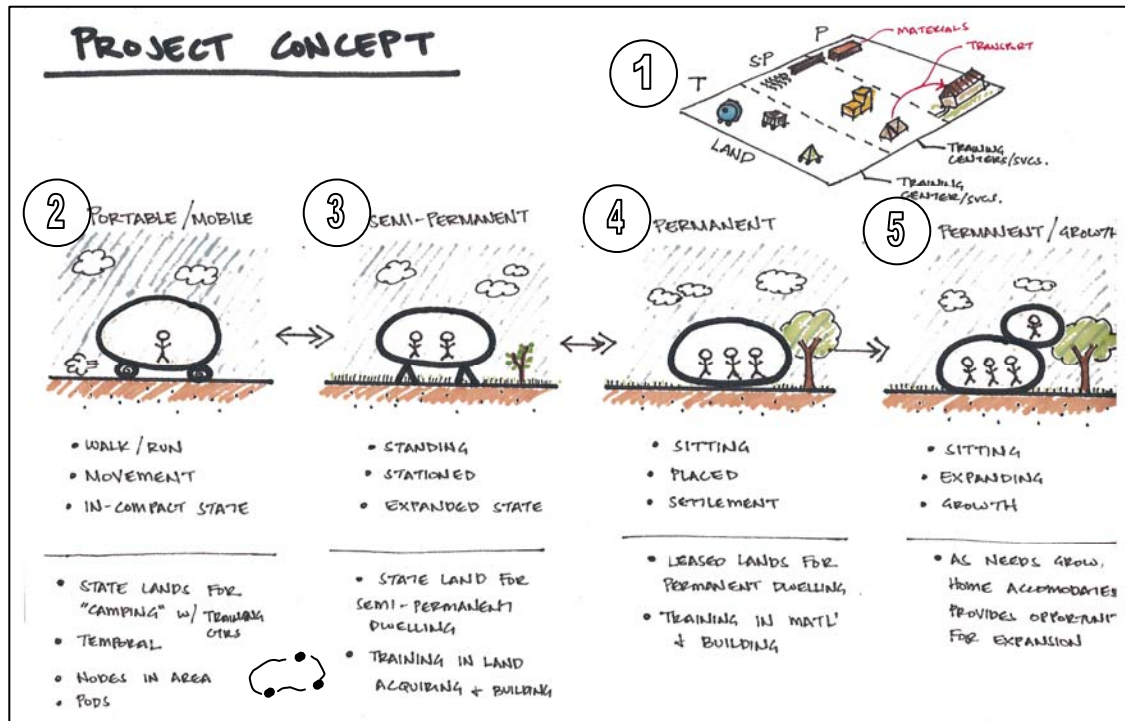 PROJECT CONCEPT
1
T
S.P
P
MATERIALS
TRANSPORT
LAND
TRAINING
CENTERS/SVCS.
TRAINING
CENTER/SVCS.
2
PORTABLE/MOBILE
• WALK/RUN
• MOVEMENT
• IN-COMPACT STATE
• STATE LANDS FOR
"CAMPING" W/ TRAINING
CTRS
• TEMPORAL
• NODES IN AREA
• PODS
3
SEMI-PERMANENT
• STANDING
• STATIONED
• EXPANDED STATE
• STATE LAND FOR
SEMI-PERMANENT
DWELLING
• TRAINING IN LAND
ACQUIRING & BUILDING
4
PERMANENT
• SITTING
• PLACED
• SETTLEMENT
• LEASED LANDS FOR
PERMANENT DWELLING
• TRAINING IN MATL'
& BUILDING
5
PERMANENT/GROWTH
• SITTING
• EXPANDING
• GROWTH
• AS NEEDS GROW,
HOME ACCOMODATES
PROVIDES OPPORTUNIT
FOR EXPANSION